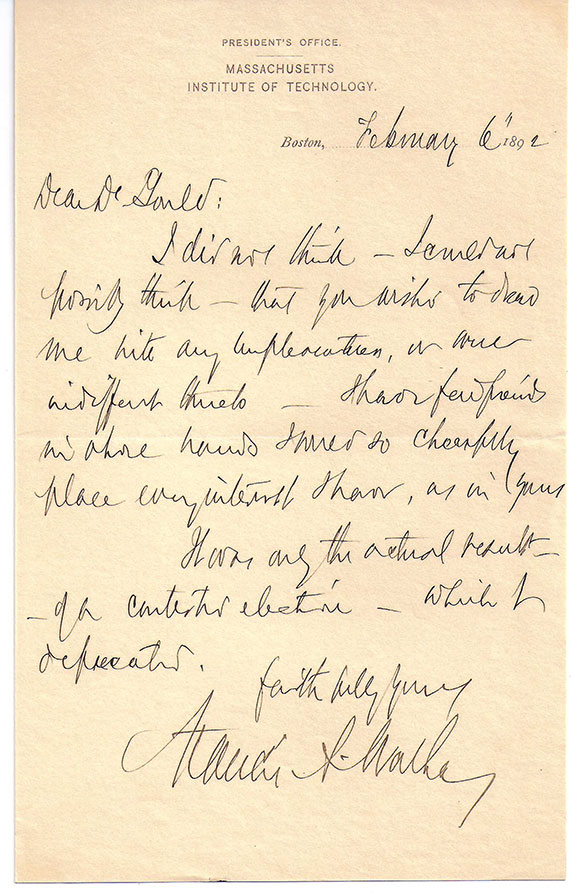 PRESIDENT'S OFFICE.
MASSACHUSETTS
INSTITUTE OF TECHNOLOGY.
Boston, February 6" 1892
Dear Dr Gould:
I did not think – I could not
possibly think – that you wished to
me into any, or were
indifferent – I have few friends
in whose hands I would so cheerfully
place every interest I have, as in yours
It was only the actual result –
– of a contested election – which I
deprecated.
Faithfully yours
Francis A. Walker